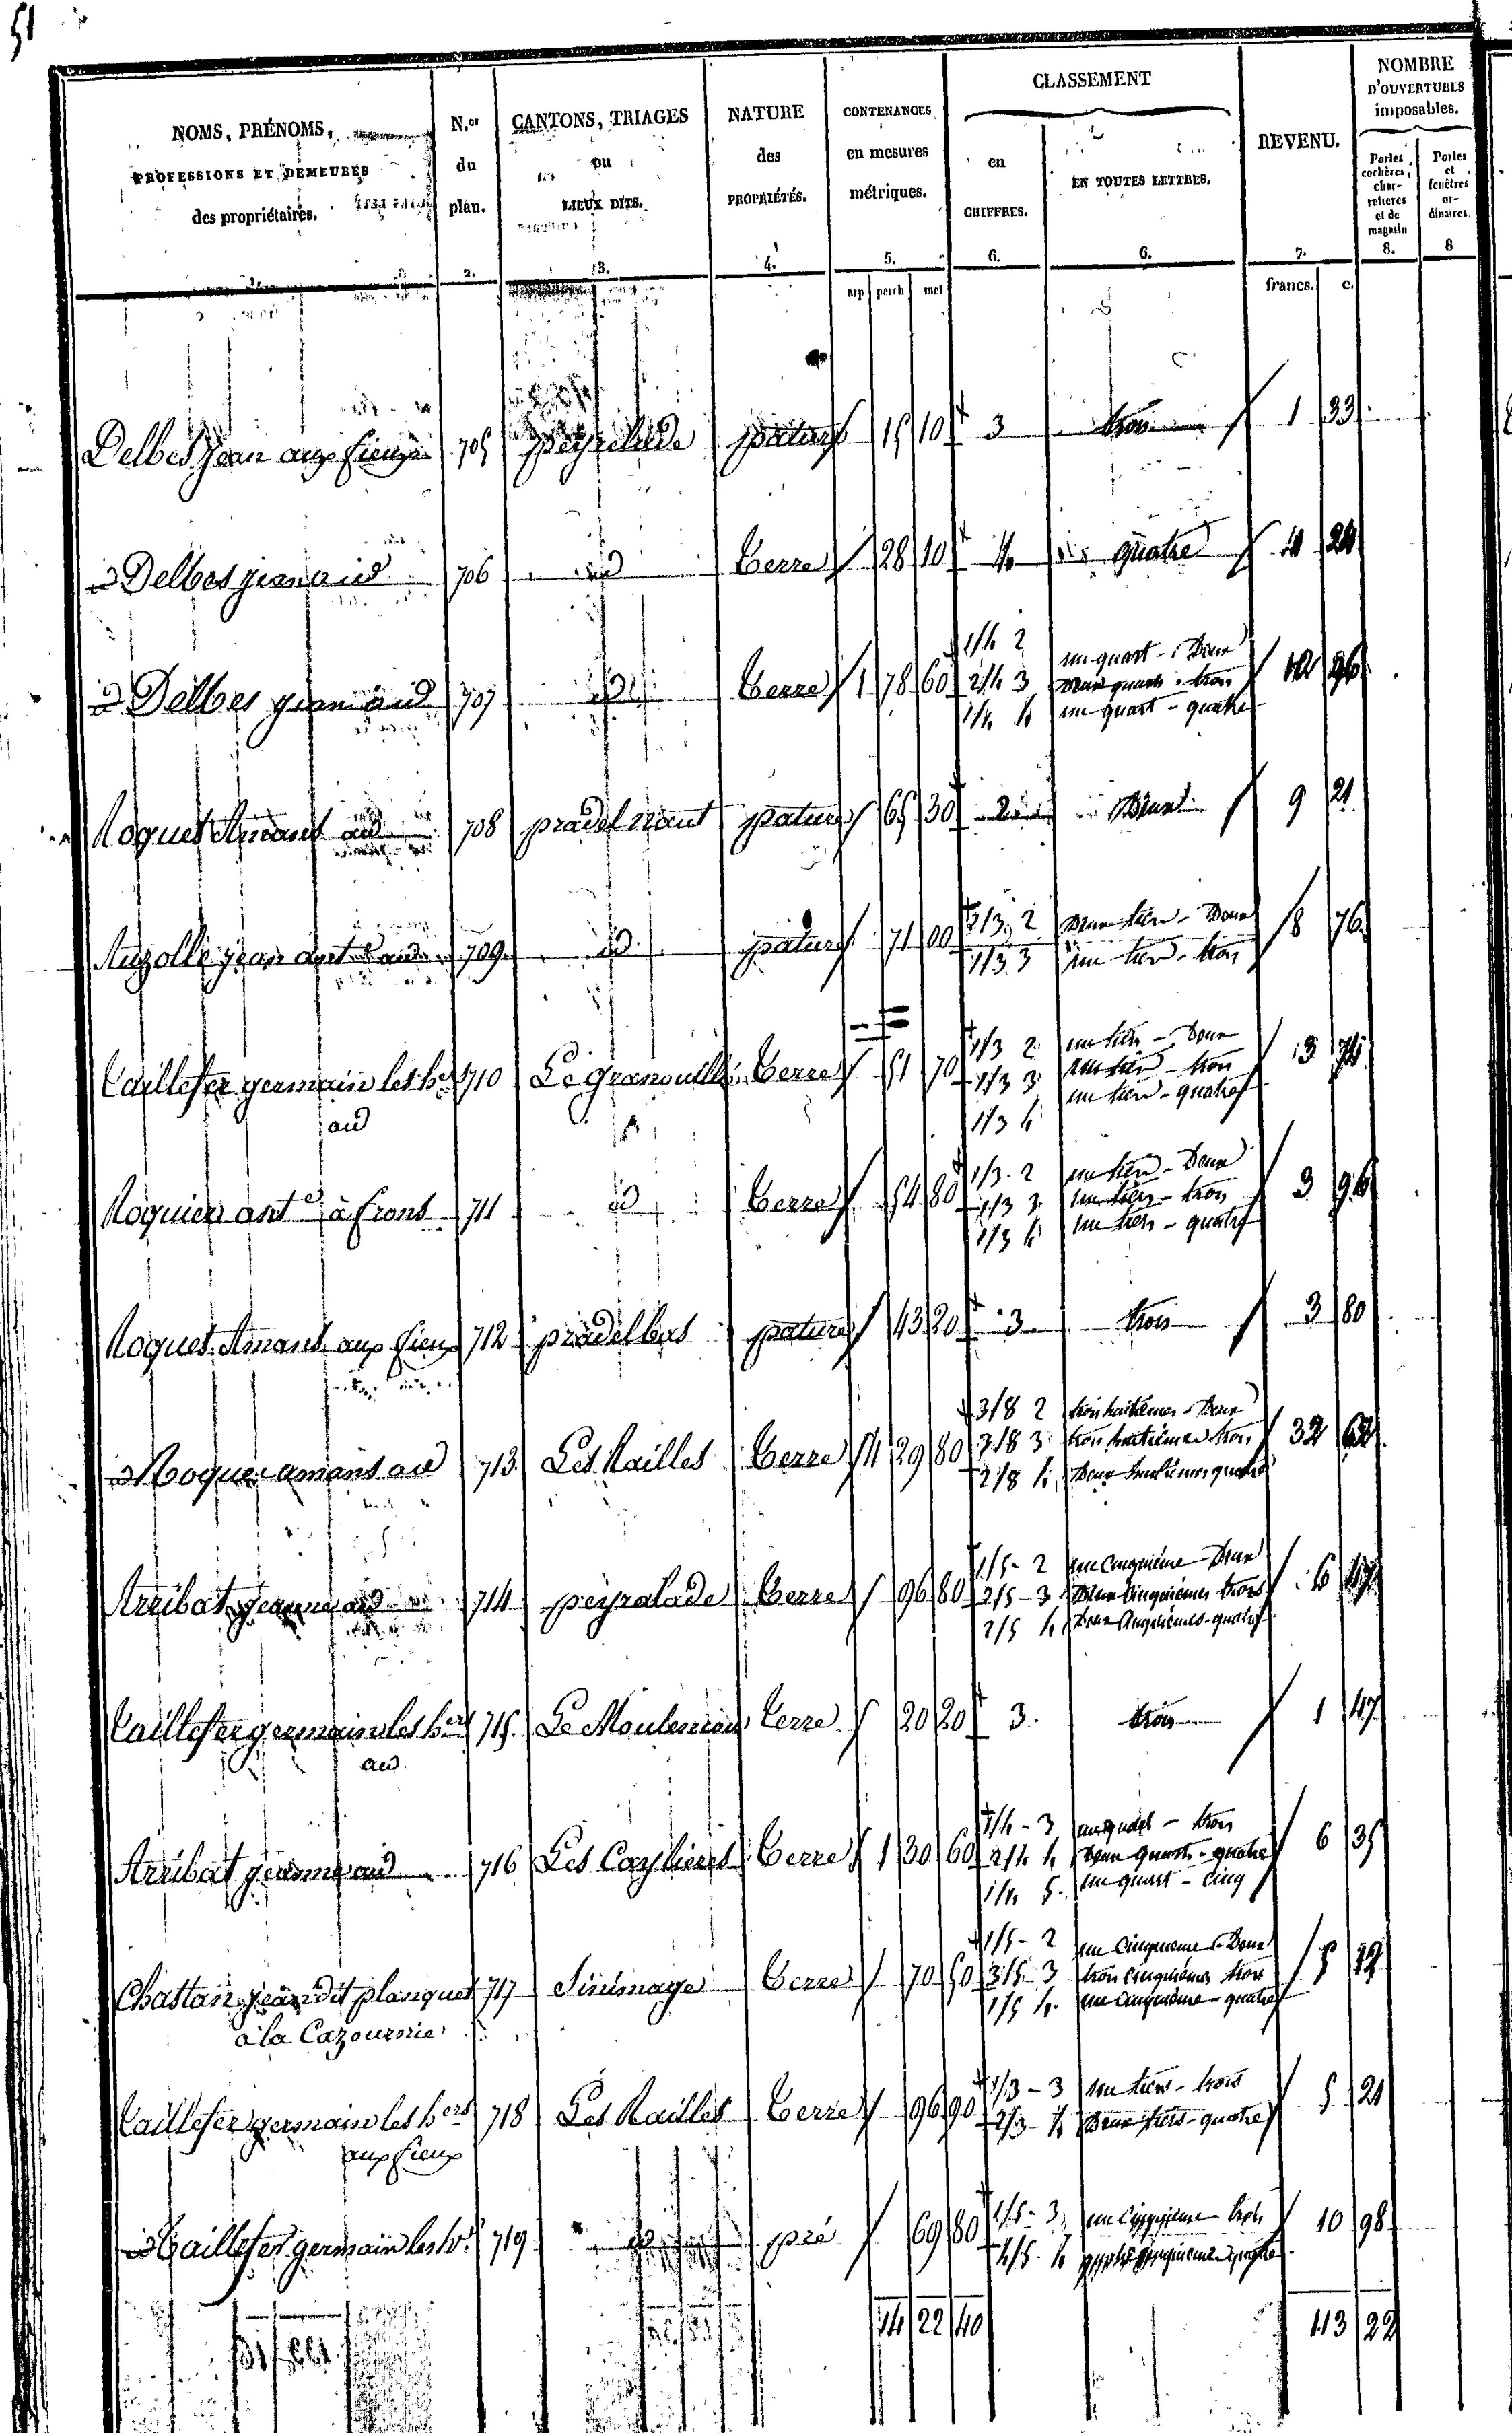 51
NOMS, PRÉNOMS,
PROFESSIONS ET DEMEURES
des propriétaires.
1.
N.os
du
plan.
2.
CANTONS, TRIAGES
ou
LIEUX DITS.
3.
NATURE
des
PROPRIÉTÉS.
4.
CONTENANCES
en mesures
métriques.
5.
arp perch met
CLASSEMENT
en
CHIFFRES.
6.
EN TOUTES LETTRES.
6.
REVENU.
7.
francs. c.
NOMBRE
D'OUVERTURES
imposables.
Portes cochères, char-retières et de magasin
8.
Portes et fenêtres or-dinaires.
8
Delbes jean aux fieux 705 peyralade pature 15 10 3 trois 1 33
Delbes jean aud 706 id terre 28 10 4 quatre
Delbes jean aud 707 id terre 1 78 60 1/4 2 un quart - Deux
2/4 3 Deux quarts - trois
1/4 4 un quart - quatre
Roques Amans aud 708 pradel haut pature 65 30 2 Deux 9 21
Auzolle jean ant aud 709 id pature 71 00 2/3 2 Deux tiers - Deux 8 76
1/3 3 un tiers - trois
Caillefer germain les hers 710 terre 51 70 1/3 2 un tiers - Deux 3 74
aud 1/3 3 un tiers - trois
1/3 4 un tiers - quatre
Roquier ant à frons 711 id terre 54 80 1/3 2 un tiers - Deux 3 96
1/3 3 un tiers - trois
1/3 4 un tiers - quatre
Roques Amans aux fieux 712 pradel bas pature 43 20 3 trois 3 80
Roques amans aud 713 Les Railles terre 4 29 80 3/8 2 trois huitièmes - Deux 32 62
3/8 3 trois huitièmes trois
2/8 4 Deux huitièmes quatre
Arribat jeanne aud 714 peyralade terre 96 80 1/5 - 2 un cinquième - Deux 6
2/5 - 3 Deux cinquièmes trois
2/5 4 Deux cinquièmes - quatre
Caillefer germain les hers 715 terre 20 20 3. trois 1 47
aud.
Arribat jeanne aud 716 Les Caylieres terre 1 30 60 1/4 - 3 un quart - trois 6 35
2/4 4 Deux quarts - quatre
1/4 5 un quart - cinq
Chastan jean dit planquet 717 terre 70 50 1/5 - 2 un cinquième - Deux
à la Cazournie 3/5 3 trois cinquièmes trois
1/5 4 un cinquième - quatre
Caillefer germain les hers 718 Les Railles terre 96 90 1/3 - 3 un tiers - trois 5 21
aux fieux 2/3 - 4 Deux tiers - quatre
Caillefer germain les hrs 719 id pré 69 80 1/5 - 3 un cinquième trois 10 98
4/5 - 4 quatre cinquièmes quatre
14 22 40 113 22